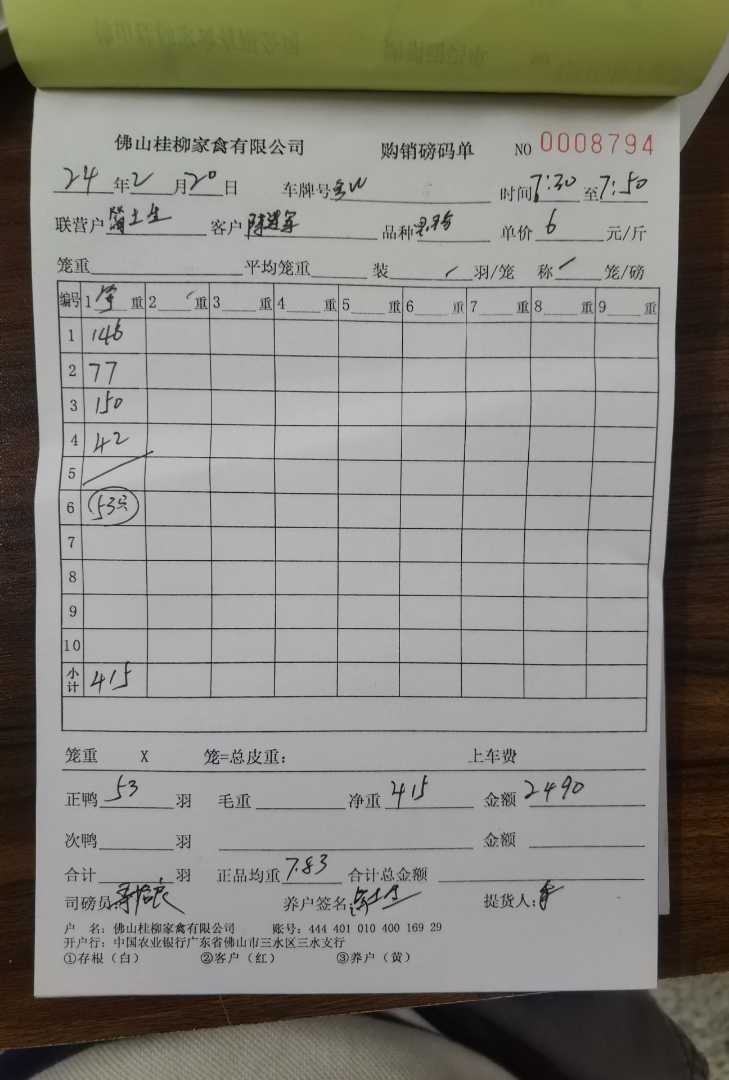 佛山桂柳家禽有限公司 购销磅码单 NO 0008794
24年2月20日 车牌号 时间7:30至7:50
联营户 客户陈进军 品种 单价6元/斤
笼重 平均笼重 装 / 羽/笼 称 / 笼/磅
编号 1 重 2 重 3 重 4 重 5 重 6 重 7 重 8 重 9 重
1 146
2 77
3 150
4 42
5
6 53只
7
8
9
10
小计 415
笼重 X 笼=总皮重: 上车费
正鸭53羽 毛重 净重415 金额2490
次鸭 羽 金额
合计 羽 正品均重7.83 合计总金额
司磅员: 养户签名: 提货人:
户 名: 佛山桂柳家禽有限公司 账号: 444 401 010 400 169 29
开户行: 中国农业银行广东省佛山市三水区三水支行
①存根(白) ②客户(红) ③养户(黄)